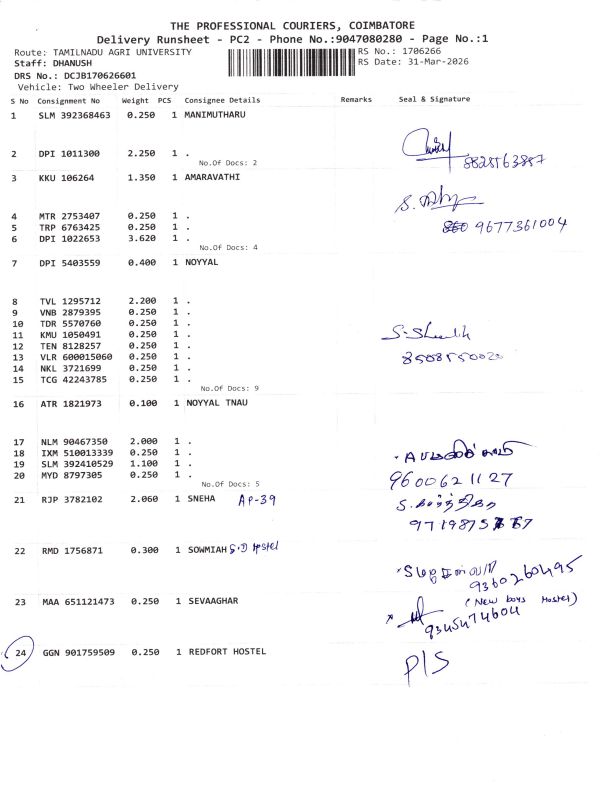 THE PROFESSIONAL COURIERS, COIMBATORE
Delivery Runsheet - PC2 - Phone No.:9047080280 - Page No.:1
Route: TAMILNADU AGRI UNIVERSITY RS No.: 1706266
Staff: DHANUSH RS Date: 31-Mar-2026
DRS No.: DCJB170626601
Vehicle: Two Wheeler Delivery
S No Consignment No Weight PCS Consignee Details Remarks Seal & Signature
1 SLM 392368463 0.250 1 MANIMUTHARU
2 DPI 1011300 2.250 1 .
No.Of Docs: 2
3 KKU 106264 1.350 1 AMARAVATHI
4 MTR 2753407 0.250 1 .
5 TRP 6763425 0.250 1 .
9677361004
6 DPI 1022653 3.620 1 .
No.Of Docs: 4
7 DPI 5403559 0.400 1 NOYYAL
8 TVL 1295712 2.200 1 .
9 VNB 2879395 0.250 1 .
10 TDR 5570760 0.250 1 .
11 KMU 1050491 0.250 1 .
12 TEN 8128257 0.250 1 .
13 VLR 600015060 0.250 1 .
14 NKL 3721699 0.250 1 .
15 TCG 42243785 0.250 1 .
No.Of Docs: 9
16 ATR 1821973 0.100 1 NOYYAL TNAU
17 NLM 90467350 2.000 1 .
18 IXM 510013339 0.250 1 .
19 SLM 392410529 1.100 1 .
20 MYD 8797305 0.250 1 .
9600621127
No.Of Docs: 5
21 RJP 3782102 2.060 1 SNEHA AP-39
22 RMD 1756871 0.300 1 SOWMIAH G.D Hostel
9360260495
23 MAA 651121473 0.250 1 SEVAAGHAR (New boys Hostel)
9345474604
24 GGN 901759509 0.250 1 REDFORT HOSTEL
P/S